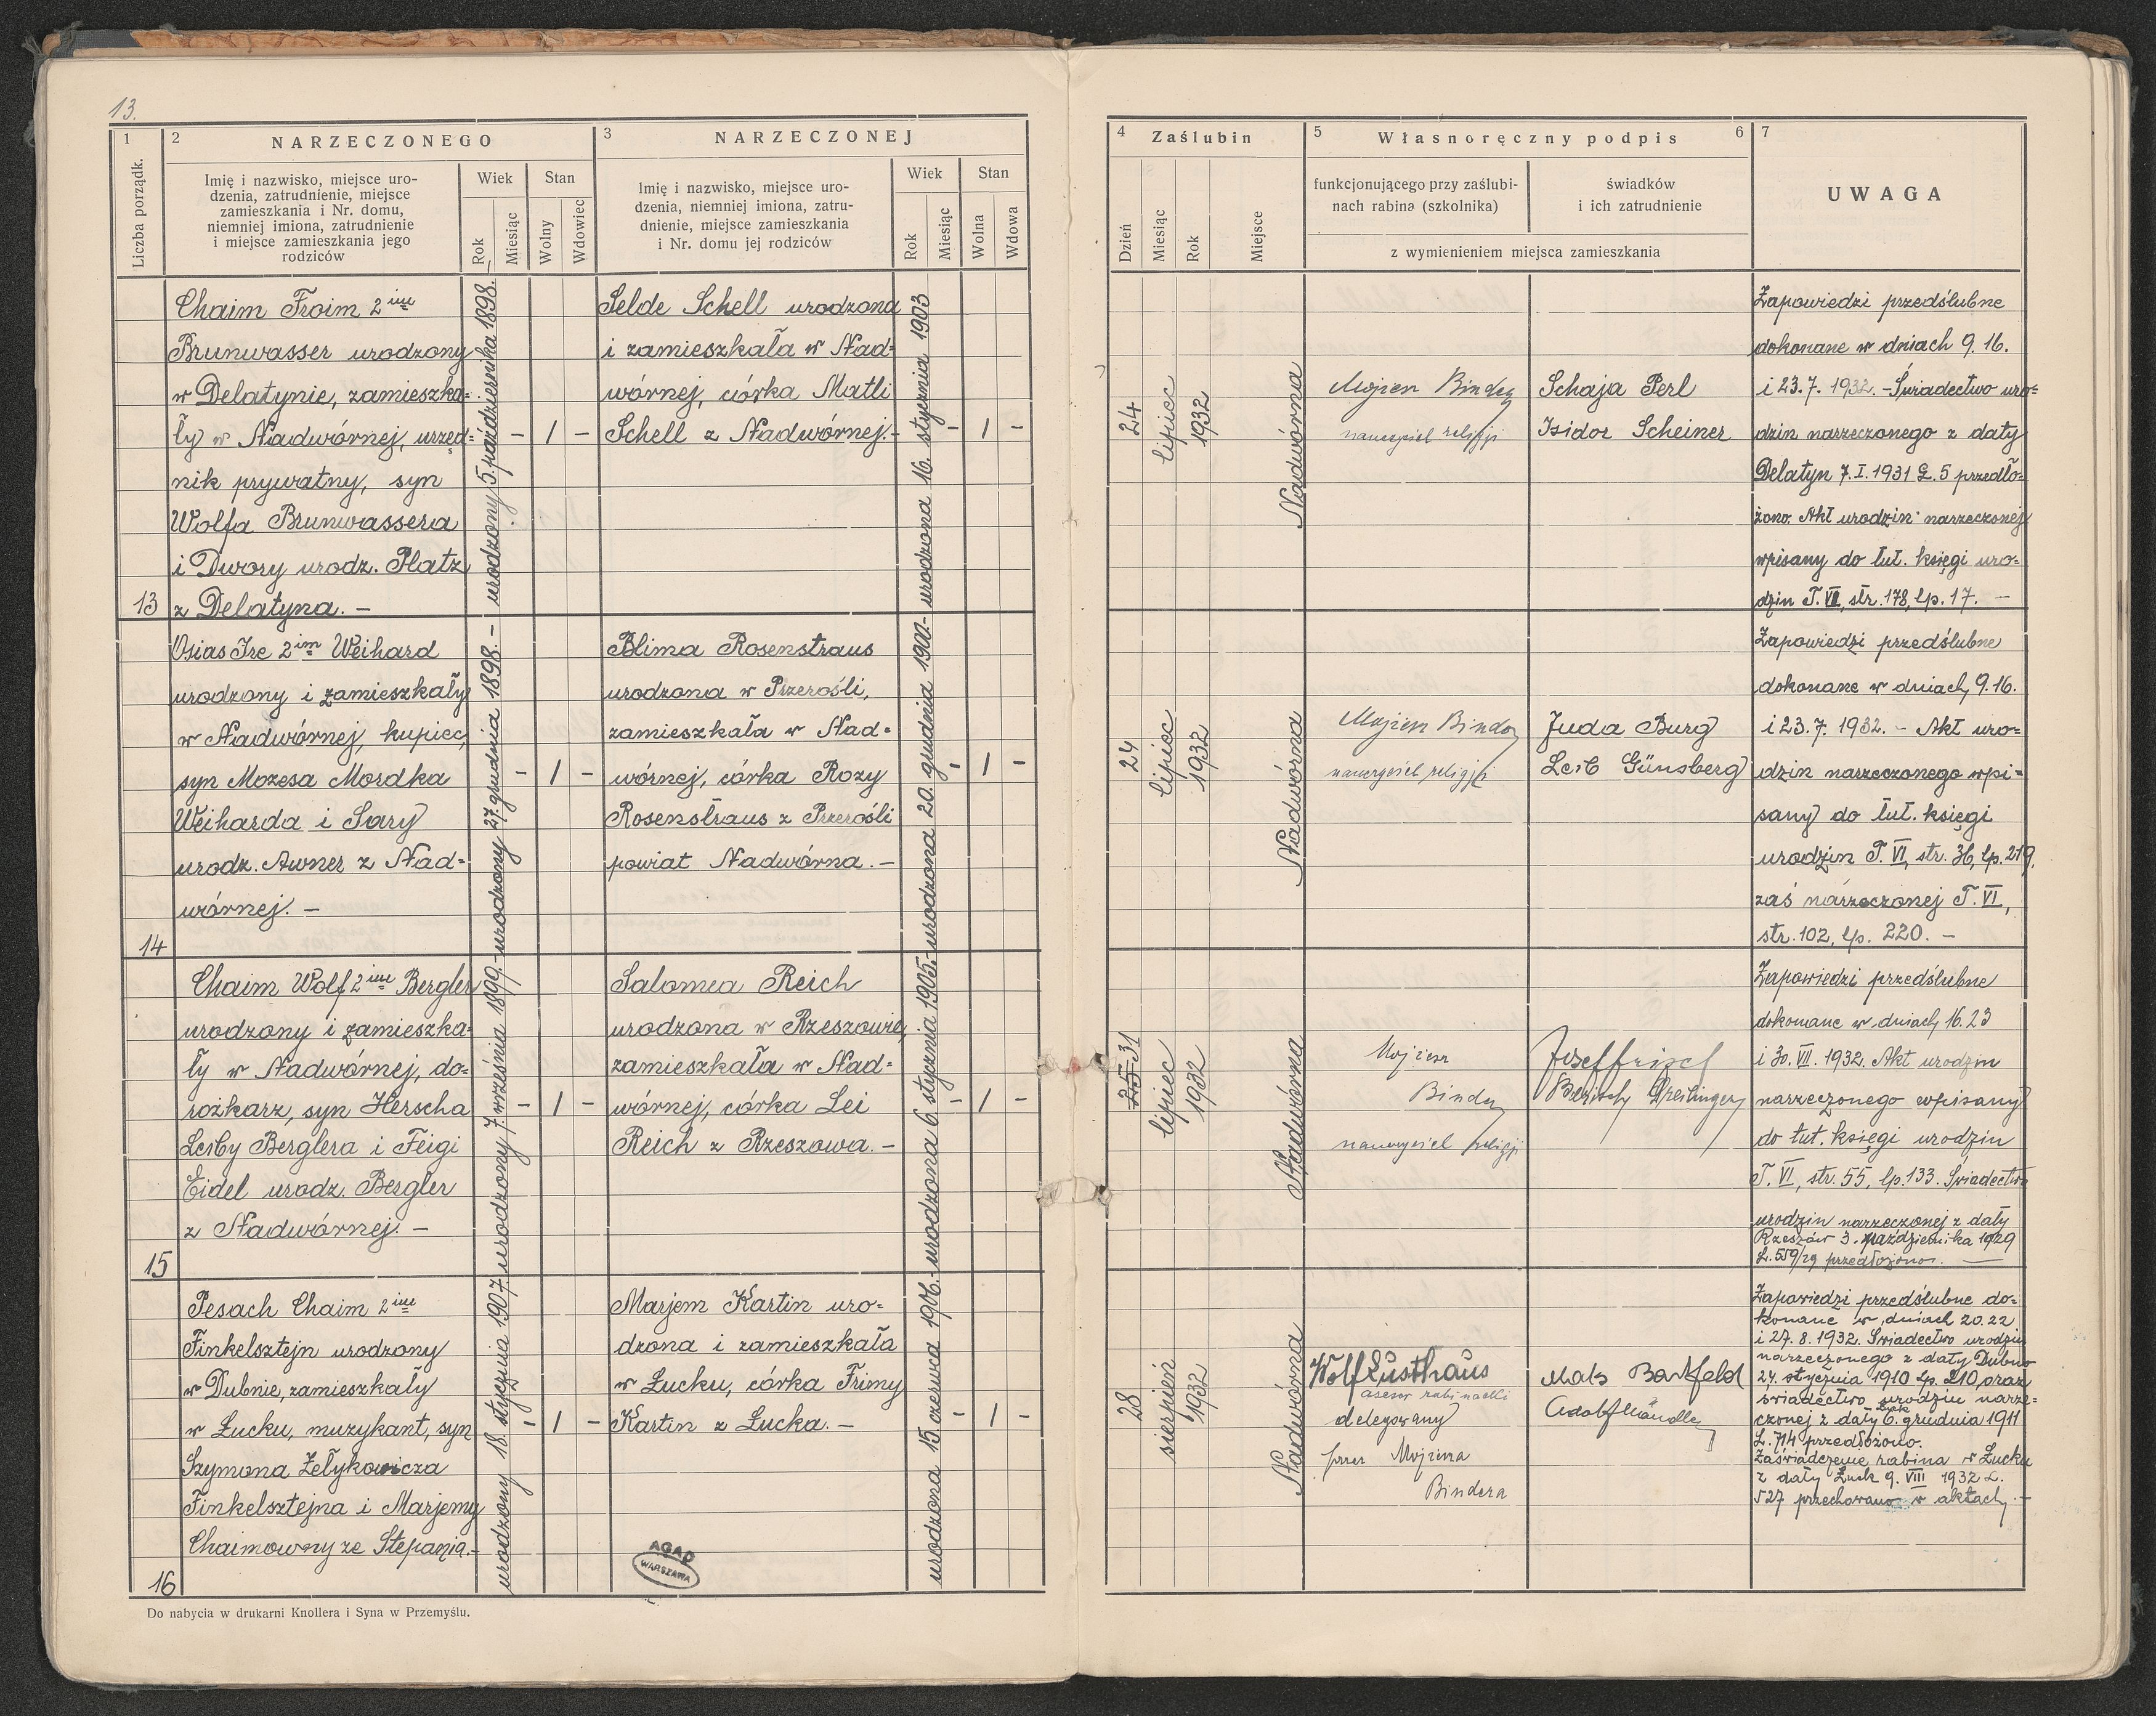 13.
1
2
NARZECZONEGO
3
NARZECZONEJ
Liczba porządk.
Imię i nazwisko, miejsce uro-
dzenia, zatrudnienie, miejsce
zamieszkania i Nr. domu,
niemniej imiona, zatrudnienie
i miejsce zamieszkania jego
rodziców
Wiek
Stan
Rok
Miesiąc
Wolny
Wdowiec
Imię i nazwisko, miejsce uro-
dzenia, niemniej imiona, zatru-
dnienie, miejsce zamieszkania
i Nr. domu jej rodziców
Wiek
Stan
Rok
Miesiąc
Wolna
Wdowa
4
Zaślubin
5
Własnoręczny podpis
6
7
Dzień
Miesiąc
Rok
Miejsce
funkcjonującego przy zaślubi-
nach rabina (szkolnika)
świadków
i ich zatrudnienie
z wymienieniem miejsca zamieszkania
UWAGA
Chaim Froim 2 im
Brunwasser urodzony
w Delatynie, zamieszka-
ły w Nadwórnej, urzęd-
nik prywatny, syn
Wolfa Brunwassera
i Dwory urodz. Platz
13 z Delatyna. -
urodzony 5. października 1898.
- 1 -
Selde Schell urodzona
i zamieszkała w Nad-
wórnej, córka Matli
Schell z Nadwórnej. -
urodzona 16. stycznia 1903
- 1 -
24
lipiec
1932
Nadwórna
Mojżesz Binder
nauczyciel religji
Schaja Perl
Isidor Scheiner
Zapowiedzi przedślubne
dokonane w dniach 9. 16.
i 23. 7. 1932. - Świadectwo uro-
dzin narzeczonego z daty
Delatyn 7. I. 1931 L. 5 przedło-
żono. Akt urodzin narzeczonej
wpisany do tut. księgi uro-
dzin T. VII, str. 178, lp. 17. -
Osias Ire 2 im Weihard
urodzony i zamieszkały
w Nadwórnej, kupiec,
syn Mozesa Mordka
Weiharda i Sary
urodz. Awner z Nad-
wórnej. -
14
urodzony 27. grudnia 1898. -
- 1 -
Blima Rosenstraus
urodzona w Przerośli,
zamieszkała w Nad-
wórnej, córka Rozy
Rosenstraus z Przerośli
powiat Nadwórna. -
urodzona 20. grudnia 1900. -
- 1 -
24
lipiec
1932
Nadwórna
Mojżesz Binder
nauczyciel religji
Juda Burg
Leib Günsberg
Zapowiedzi przedślubne
dokonane w dniach 9. 16.
i 23. 7. 1932. - Akt uro-
dzin narzeczonego wpi-
sany do tut. księgi
urodzin T. VI, str. 36, lp. 219,
zaś narzeczonej T. VI,
str. 102, lp. 220. -
Chaim Wolf 2 im Bergler
urodzony i zamieszka-
ły w Nadwórnej, do-
rożkarz, syn Herscha
Leiby Berglera i Feigi
Eidel urodz. Bergler
z Nadwórnej. -
15
urodzony 7. września 1899. -
- 1 -
Salomea Reich
urodzona w Rzeszowie,
zamieszkała w Nad-
wórnej, córka Lei
Reich z Rzeszowa. -
urodzona 6 stycznia 1905. -
- 1 -
31
lipiec
1932
Nadwórna
Mojżesz
Binder
nauczyciel religji
Josef Frisch
Zapowiedzi przedślubne
dokonane w dniach 16. 23
i 30. VII. 1932. Akt urodzin
narzeczonego wpisany
do tut. księgi urodzin
T. VI, str. 55, lp. 133. Świadectwo
urodzin narzeczonej z daty
Rzeszów 3. października 1929
L. 559/29 przedłożono. -
Pesach Chaim 2 im
Finkelsztejn urodzony
w Dubnie, zamieszkały
w Łucku, muzykant, syn
Szymona Zełykowicza
Finkelsztejna i Marjemy
Chaimowny ze Stepania. -
16
urodzony 18. stycznia 1907
- 1 -
Marjem Kartin uro-
dzona i zamieszkała
w Łucku, córka Frimy
Kartin z Łucka. -
urodzona 15 czerwca 1906. -
- 1 -
28
sierpień
1932
Nadwórna
Wolf Lusthaus
asesor rabinacki
delegowany
przez Mojżesza
Bindera
Maks Bartfeld
Adolf Mandler
Zapowiedzi przedślubne do-
konane w dniach 20. 22
i 27. 8. 1932. Świadectwo urodzin
narzeczonego z daty Dubno
24. stycznia 1910 lp. 210, oraz
świadectwo urodzin narze-
czonej z daty Łuck 6. grudnia 1911
L. 714 przedłożono.
Zaświadczenie rabina w Łucku
z daty Łuck 9. VIII 1932 L.
527 przechowano w aktach. -
AGAD
WARSZAWA
Do nabycia w drukarni Knollera i Syna w Przemyślu.